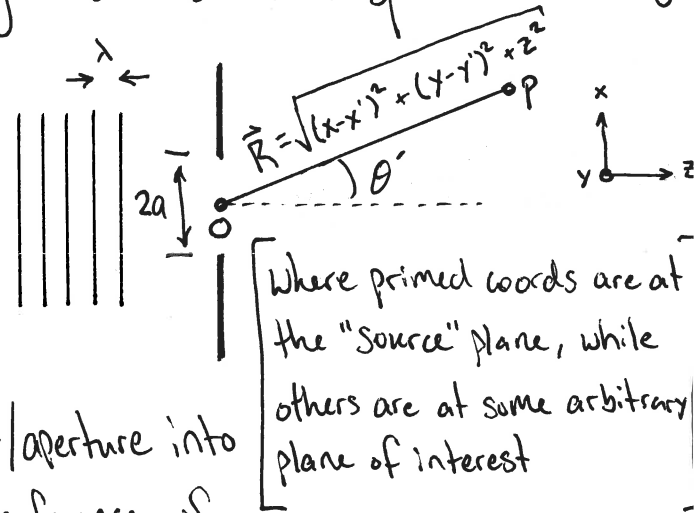 λ
R⃗ = √(x-x')² + (y-y')² + z²
P
x
y
z
2a
θ'
O
Where primed coords are at
the "source" plane, while
others are at some arbitrary
plane of interest
aperture into